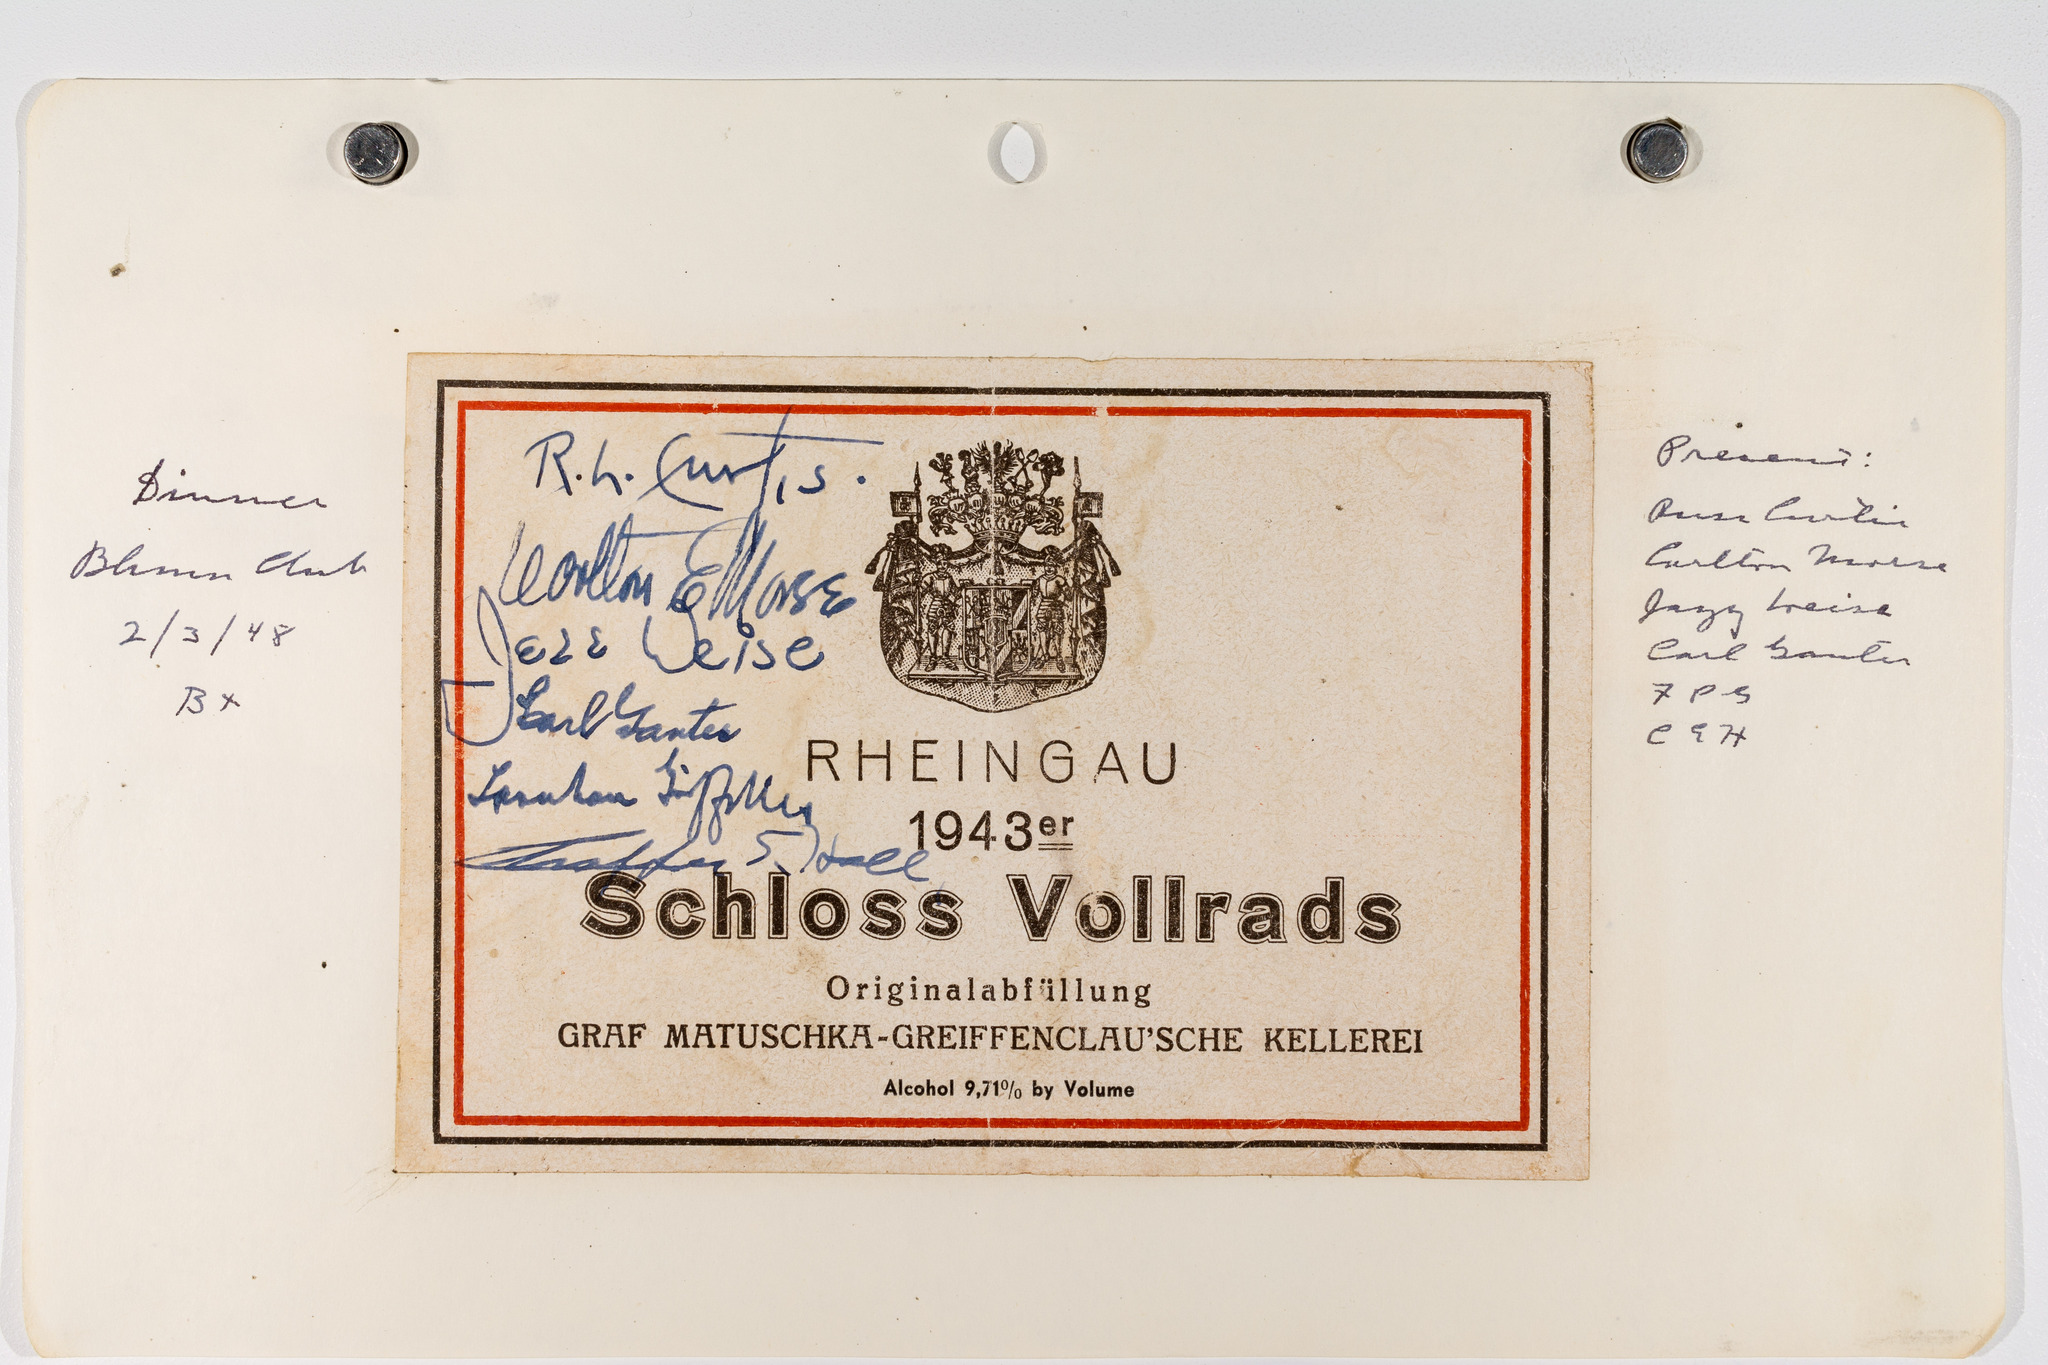 Dinner
2/3/48
R. L. Curtis.
Carlton E Morse
Weise
Carl Ganter
S. Hall
RHEINGAU
1943er
Schloss Vollrads
Originalabfüllung
GRAF MATUSCHKA-GREIFFENCLAU'SCHE KELLEREI
Alcohol 9,71% by Volume
Present:
Carlton Morse
Weise
Carl Ganter
F P G
C E H